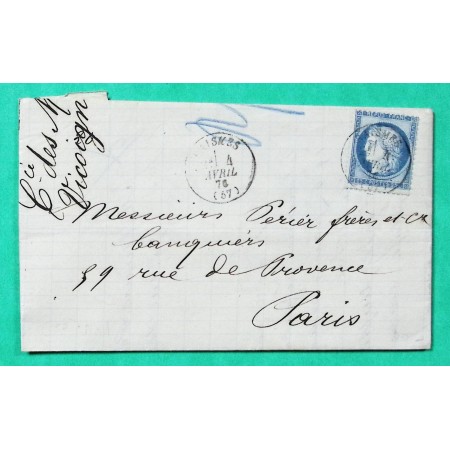 Cie des M
Vicoign
4
AVRIL
76
(57)
Messieurs Périer frères et Cie
banquiers
59 rue de Provence
Paris